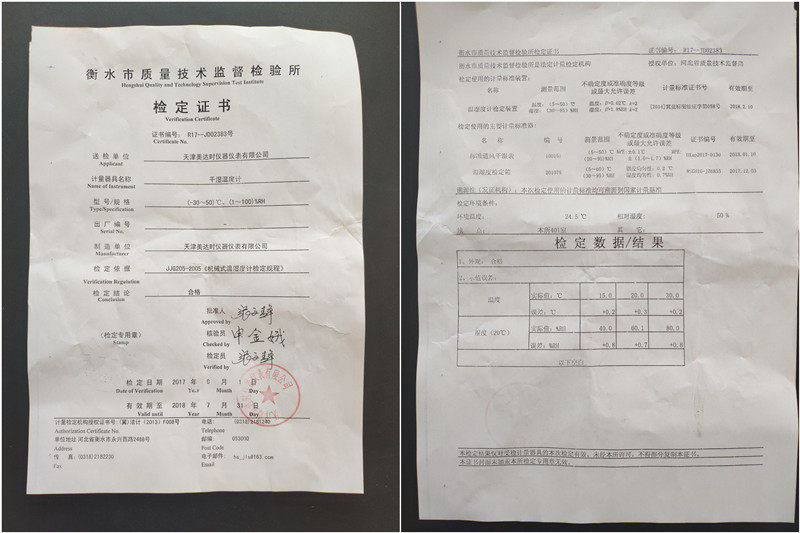 衡水市质量技术监督检验所
Hengshui Quality and Technology Supervision Test Institute
检定证书
Verification Certificate
证书编号: R17--JD02383号
Certificate No.
送检单位 天津美达时仪器仪表有限公司
Applicant
计量器具名称 干湿温度计
Name of Instrument
型号/规格 (-30~50)℃、(1~100)%RH
Type/Specification
出厂编号 -
Serial No.
制造单位 天津美达时仪器仪表有限公司
Manufacturer
检定依据 JJG205-2005《机械式温湿度计检定规程》
Verification Regulation
检定结论 合格
Conclusion
批准人
Approved by
(检定专用章)
Stamp
核验员 申金娥
Checked by
检定员
Verified by
检定日期 2017 年 8 月 1 日
Date of Verification Year Month Day
有效期至 2018 年 7 月 31 日
Valid until Year Month Day
计量检定机构授权证书号:(冀)法计(2013)F008号 电话: (0318)2181240
Authorization Certificate No. Telephone
单位地址 河北省衡水市永兴西路2488号 邮编: 053000
Address Post Code
传 真:(0318)2182230 电子邮件: hs_jls@163.com
Fax Email
衡水市质量技术监督检验所检定证书 证书编号: R17--JD02383
衡水市质量技术监督检验所是法定计量检定机构 授权单位: 河北省质量技术监督局
检定使用的计量标准装置:
名称 测量范围 不确定度或准确度等级或最大允许误差 计量标准证书号 有效期至
温湿度计检定装置 温度:(5~50)℃ 温度: U=0.02℃ k=2 2018.2.10
湿度:(30~95)%RH 湿度: U=1.0%RH k=2
检定使用的主要计量标准器:
名称 编号 测量范围 不确定度或准确度等级或最大允许误差 证书编号 有效期至
标准通风干湿表 2018.01.10
温湿度检定箱 201075 2017.12.03
溯源性(发证机构):本次检定使用的计量标准均可溯源到国家计量基准
检定环境条件:
环境温度: 24.5 ℃ 相对湿度: 50 %
地 点: 本所401室 其 它:
检定数据/结果
1、外观: 合格
2、示值误差:
温度 实际值: ℃ 15.0 20.0 30.0
误差: ℃ +0.2 +0.3 +0.2
湿度(20℃) 实际值: %RH 40.0 60.1 80.0
误差: %RH +0.8 +0.7 +0.8
以下空白
本检定结果仅对受检计量器具的本次检定有效。未经本所许可,不得部分复制本证书。
本证书封面未加盖本所检定专用章无效。